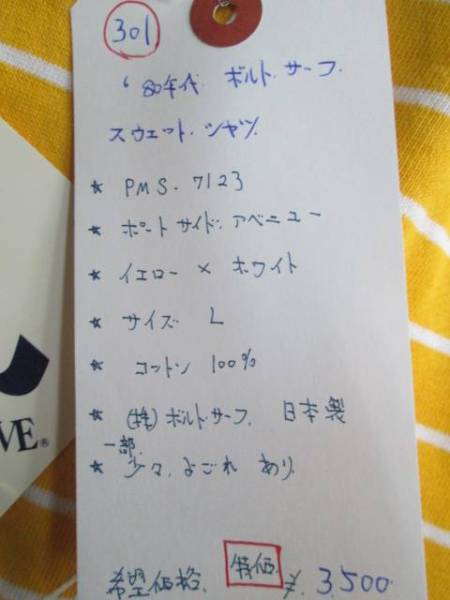 301
'80年代 ボルト.サーフ.
スウェット.シャツ.
* PMS. 7123
* ポートサイド:アベニュー
* イエロー × ホワイト
* サイズ L
* コットン 100%
* (株)ボルト.サーフ. 日本製
一部.
* 少々.よごれ あり.
希望価格. 特価 ¥. 3,500
VE®